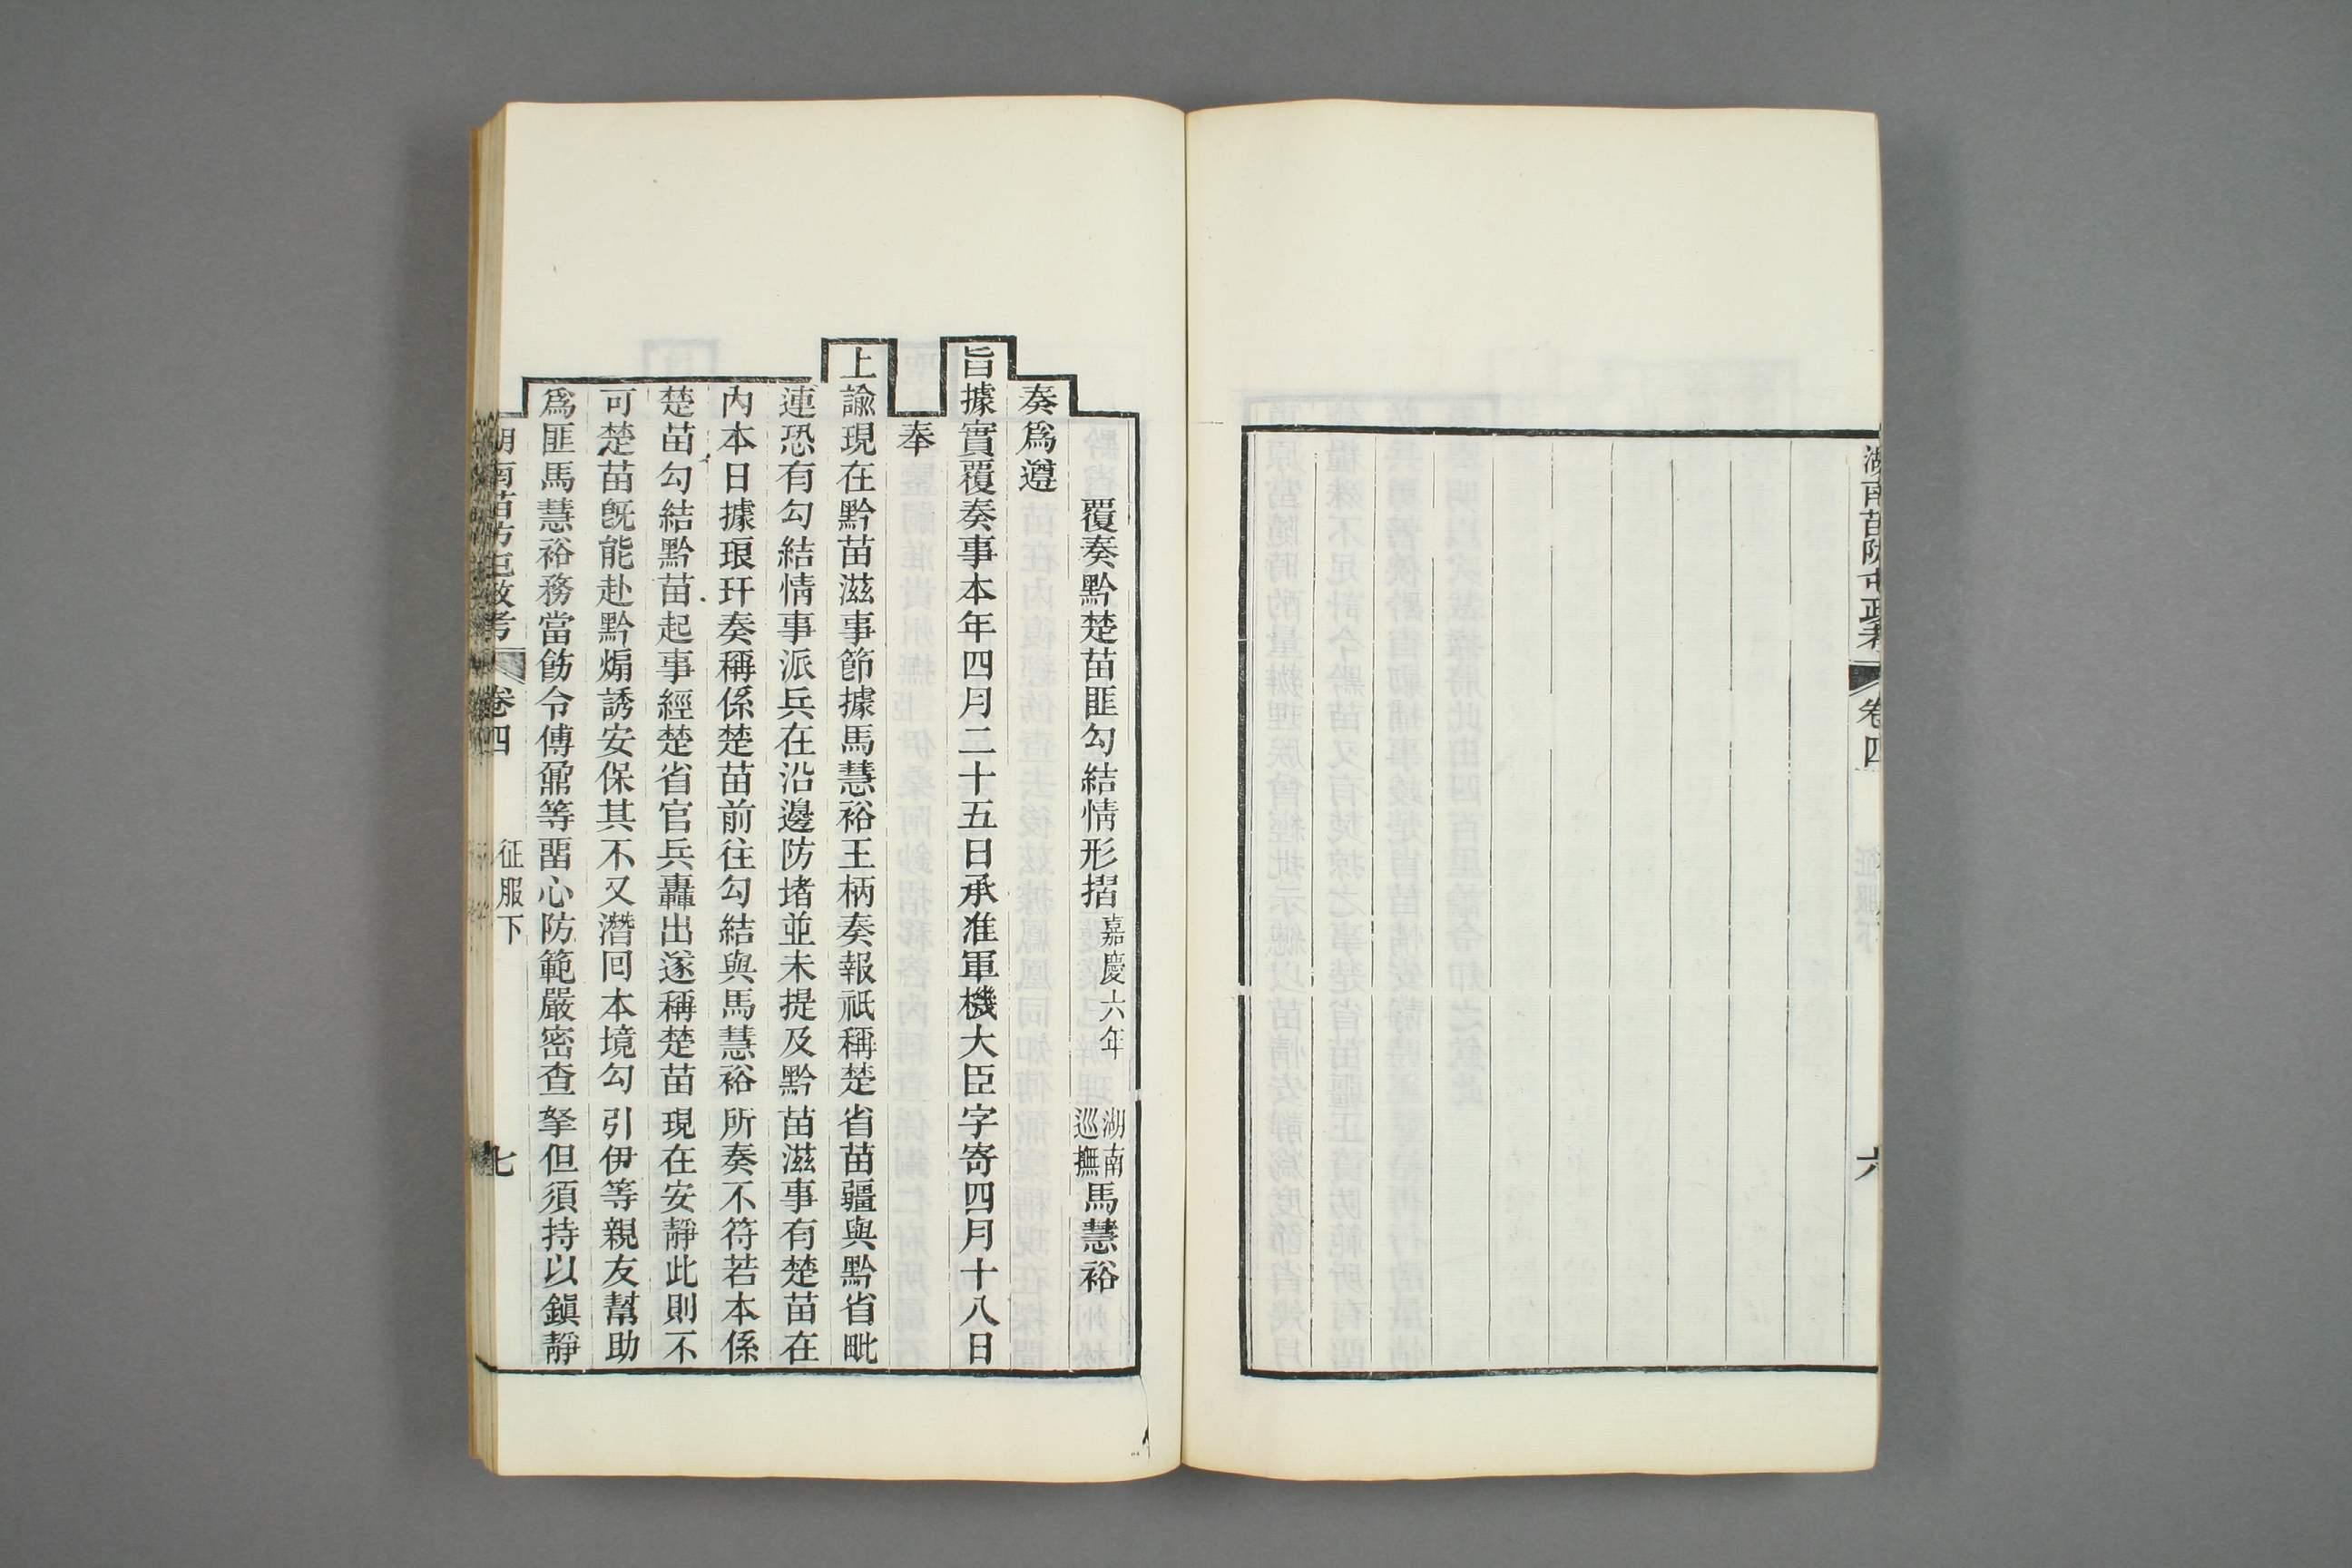 湖南苗防屯政考
卷四
六
覆奏黔楚苗匪勾結情形摺 嘉慶六年 湖南巡撫 馬慧裕
奏爲遵
旨據實覆奏事本年四月二十五日承准軍機大臣字寄四月十八日
奉
上諭現在黔苗滋事節據馬慧裕王柄奏報祇稱楚省苗疆與黔省毗
連恐有勾結情事派兵在沿邊防堵並未提及黔苗滋事有楚苗在
內本日據琅玕奏稱係楚苗前往勾結與馬慧裕所奏不符若本係
楚苗勾結黔苗起事經楚省官兵轟出遂稱楚苗現在安靜此則不
可楚苗旣能赴黔煽誘安保其不又潛回本境勾引伊等親友幫助
爲匪馬慧裕務當飭令傅鼐等畱心防範嚴密查拏但須持以鎭靜
湖南苗防屯政考
卷四
征服下
七